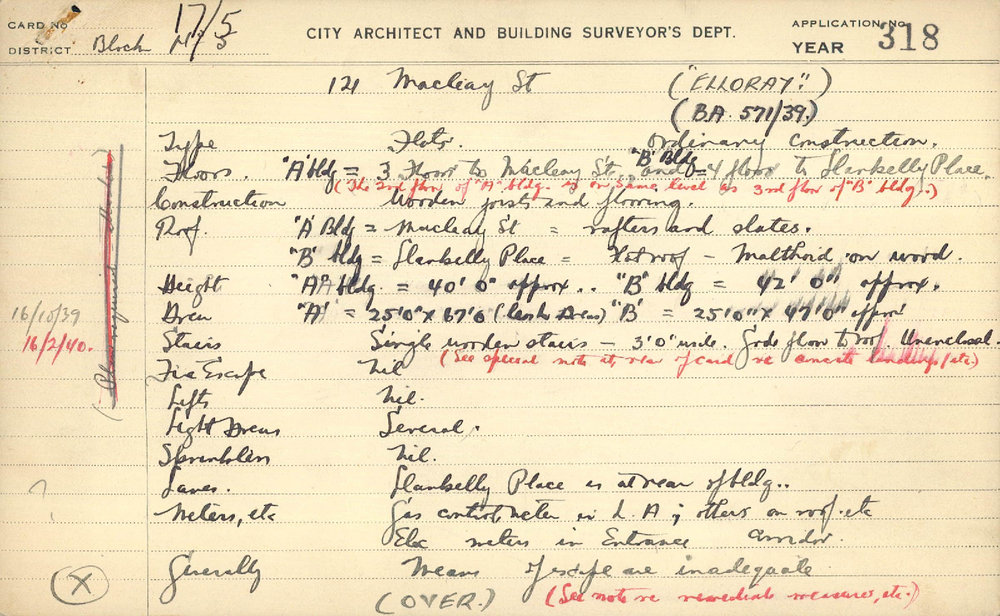 CARD No 17/5
CITY ARCHITECT AND BUILDING SURVEYOR'S DEPT.
APPLICATION No
DISTRICT Block
YEAR 318
121 Macleay St ("ELLORAY".)
(B.A. 571/39.)
Type Flats. Ordinary construction.
Floors. "A" bldg = 3 Floors to Macleay St, and "B" Bldg = 4 floors to Llankelly Place.
(The 2nd floor of "A" bldg. is on same level as 3rd floor of "B" bldg.)
Construction Wooden joists and flooring.
Roof. "A" Bldg = Macleay St = rafters and slates.
"B" bldg = Llankelly Place = Flat roof - Malthoid on wood.
Height "A" bldg. = 40' 0" approx.. "B" bldg = 42' 0" approx.
16/10/39
Area "A" = 25'0" x 67'0 (less Areas) "B" = 25'0" x 47'0" approx
16/2/40.
Stairs Single wooden stairs - 3'0" wide. Grd floor to roof. Unenclosed.
(See special note at rear of card re concrete landings, etc)
Fire Escape Nil
Lifts Nil.
Light Areas Several.
Sprinklers Nil.
Lanes. Llankelly Place is at rear of bldg..
?
Meters, etc Gas control meter in L.A; others on roof. etc
Elec meters in Entrance Corridor.
Generally Means of escape are inadequate
(X)
(OVER.) (See note re remedial measures, etc.)